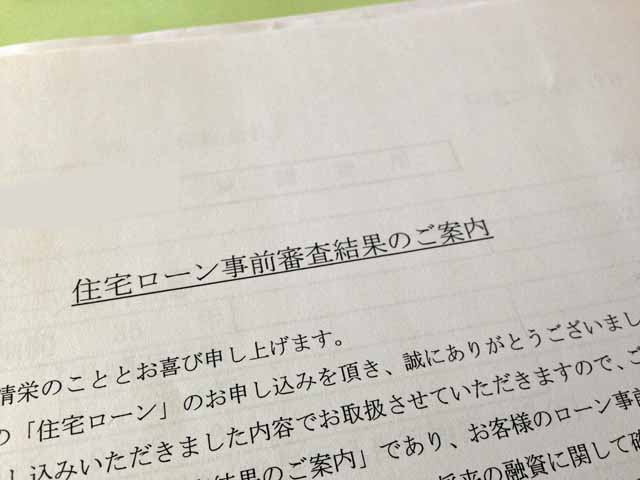 住宅ローン事前審査結果のご案内
清栄のこととお喜び申し上げます。
の「住宅ローン」のお申し込みを頂き、誠にありがとうございまし
し込みいただきました内容でお取扱させていただきますので、ご
結果のご案内」であり、お客様のローン事前
将来の融資に関して確